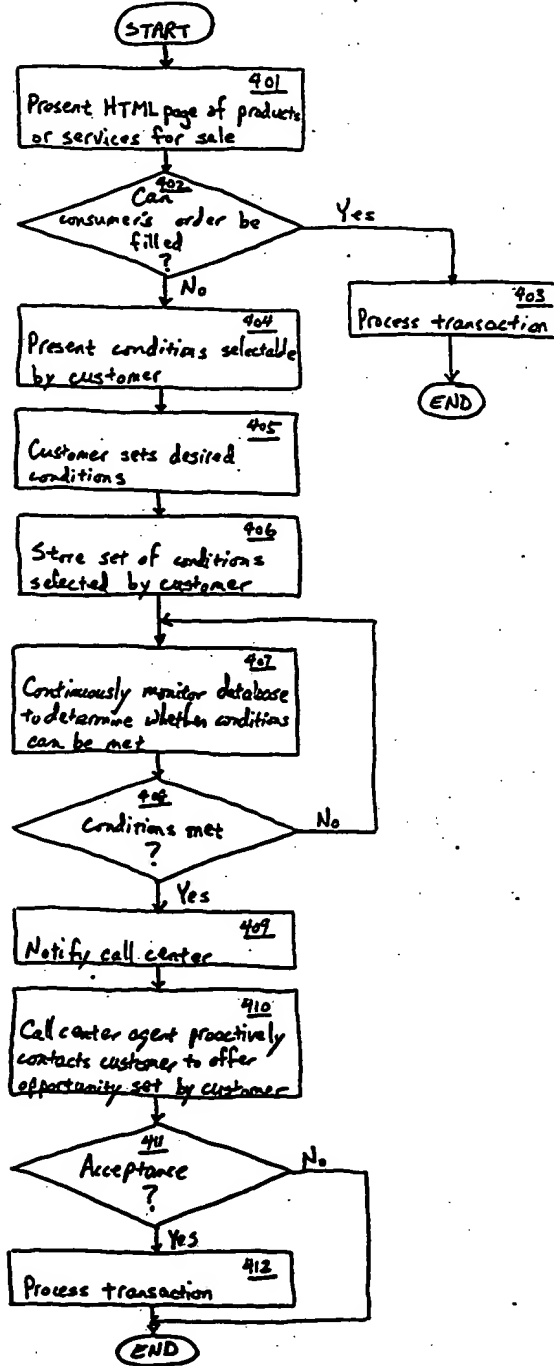 START
401
Present HTML page of products
or services for sale
402
Can
consumer's order be
filled
?
Yes
No
403
Process transaction
END
404
Present conditions selectable
by customer
405
Customer sets desired
conditions
406
Store set of conditions
selected by customer
407
Continuously monitor database
to determine whether conditions
can be met
Conditions met
?
No
Yes
409
Notify call center
410
Call center agent proactively
contacts customer to offer
opportunity set by customer
411
Acceptance
?
No
Yes
412
Process transaction
END